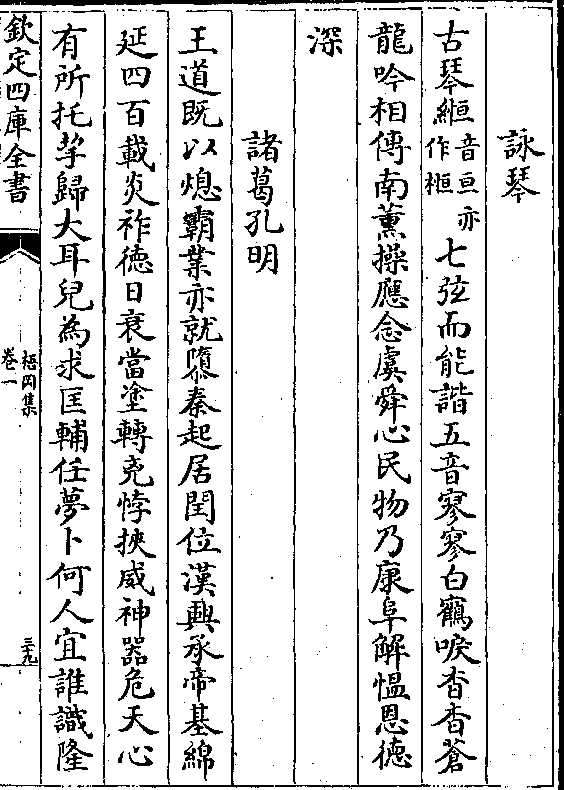 詠琴
古琴緪音亘亦作桓七弦而能諧五音寥寥白鶴唳杳杳蒼
龍吟相傳南薰操應念虞舜心民物乃康阜解慍恩德
深
諸葛孔明
王道既以熄霸業亦就隳秦起居閏位漢興承帝基綿
延四百載炎祚徳日衰當塗轉兇悖挾威神器危天心
有所托挈歸大耳兒為求匡輔任夢卜何人宜誰識隆
欽定四庫全書
梧岡集
卷一
三十九